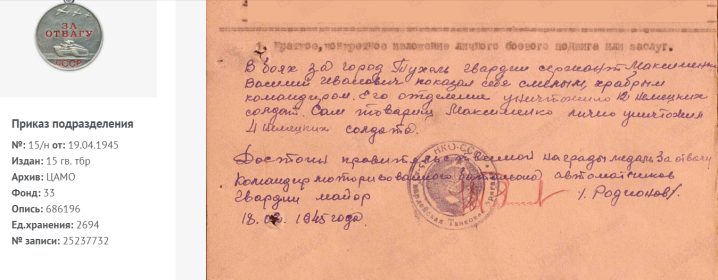 ЗА
ОТВАГУ
СССР
Приказ подразделения
№: 15/н от: 19.04.1945
Издан: 15 гв. тбр
Архив: ЦАМО
Фонд: 33
Опись: 686196
Ед.хранения: 2694
№ записи: 25237732
1. Краткое, конкретное изложение личного боевого подвига или заслуг.
В боях за город Тухоль гвардии сержант Максименко
Василий Иванович показал себя смелым, храбрым
командиром. Его отделение уничтожило 12 немецких
солдат. Сам товарищ Максименко лично уничтожил
4 немецких солдата.
Достоин правительственной награды медаль За отвагу
Командир моторизованного батальона автоматчиков
гвардии майор
/ Родионов /
18. 1945 года.
НКО-СССР
гвардейская Танковая